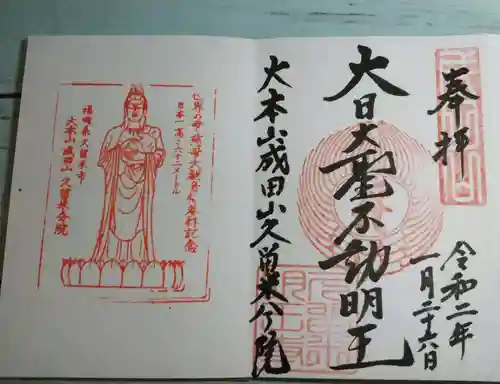 奉拝
令和二年
一月二十六日
大日大聖不動明王
大本山成田山久留米分院
日本一高さ六十二メートル
福岡県久留米市
大本山成田山久留米分院